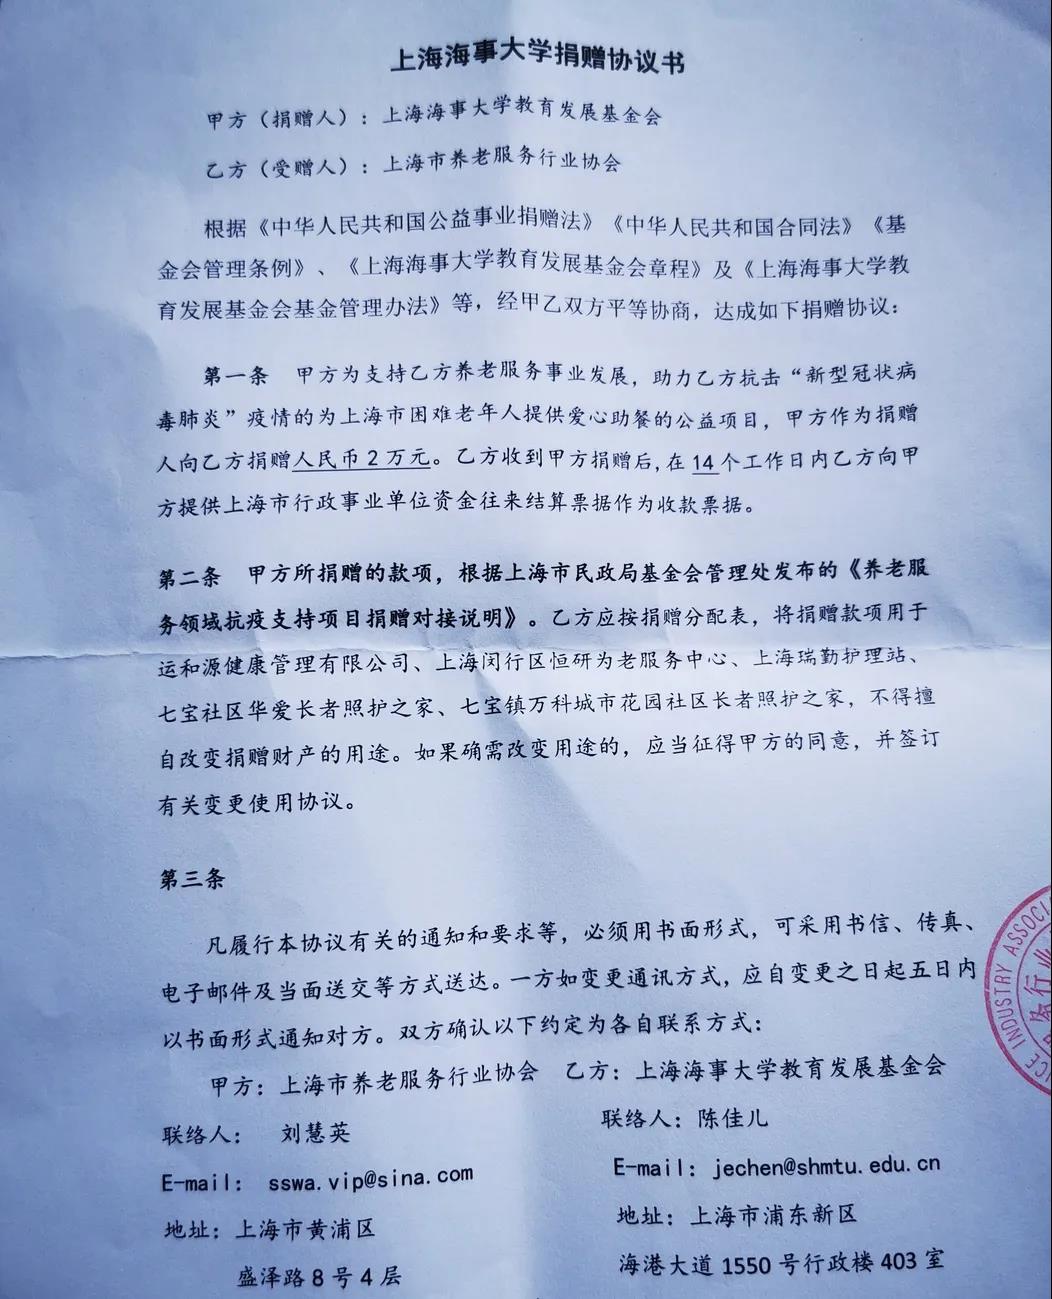 上海海事大学捐赠协议书
甲方（捐赠人）：上海海事大学教育发展基金会
乙方（受赠人）：上海市养老服务行业协会
根据《中华人民共和国公益事业捐赠法》《中华人民共和国合同法》《基
金会管理条例》、《上海海事大学教育发展基金会章程》及《上海海事大学教
育发展基金会基金管理办法》等，经甲乙双方平等协商，达成如下捐赠协议：
第一条 甲方为支持乙方养老服务事业发展，助力乙方抗击“新型冠状病
毒肺炎”疫情的为上海市困难老年人提供爱心助餐的公益项目，甲方作为捐赠
人向乙方捐赠人民币 2 万元。乙方收到甲方捐赠后,在 14 个工作日内乙方向甲
方提供上海市行政事业单位资金往来结算票据作为收款票据。
第二条 甲方所捐赠的款项，根据上海市民政局基金会管理处发布的《养老服
务领域抗疫支持项目捐赠对接说明》。乙方应按捐赠分配表，将捐赠款项用于
运和源健康管理有限公司、上海闵行区恒研为老服务中心、上海瑞勤护理站、
七宝社区华爱长者照护之家、七宝镇万科城市花园社区长者照护之家，不得擅
自改变捐赠财产的用途。如果确需改变用途的，应当征得甲方的同意，并签订
有关变更使用协议。
第三条
凡履行本协议有关的通知和要求等，必须用书面形式，可采用书信、传真、
电子邮件及当面送交等方式送达。一方如变更通讯方式，应自变更之日起五日内
以书面形式通知对方。双方确认以下约定为各自联系方式：
甲方：上海市养老服务行业协会 乙方：上海海事大学教育发展基金会
联络人： 刘慧英 联络人：陈佳儿
E-mail: sswa.vip@sina.com E-mail: jechen@shmtu.edu.cn
地址：上海市黄浦区 地址：上海市浦东新区
盛泽路 8 号 4 层 海港大道 1550 号行政楼 403 室
INDUSTRY
行业